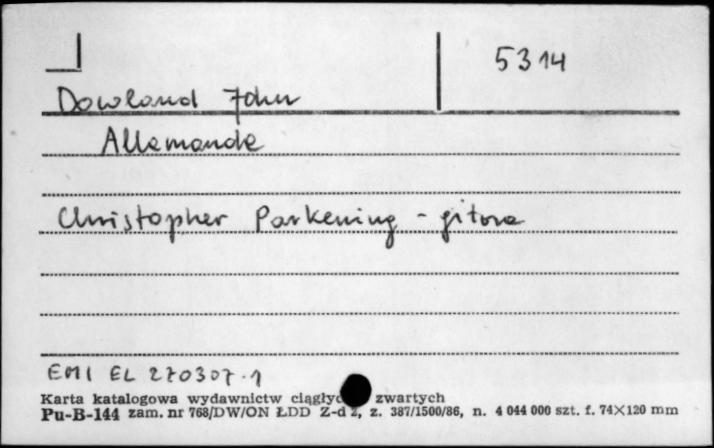 5314
Dowland John
Allemande
Christopher Parkening - gitara
EMI EL 270307.1
Karta katalogowa wydawnictw zwartych
Pu-B-144 zam. nr 768/DW/ON ŁDD Z-d 2, z. 387/1500/86, n. 4 044 000 szt. f. 74×120 mm